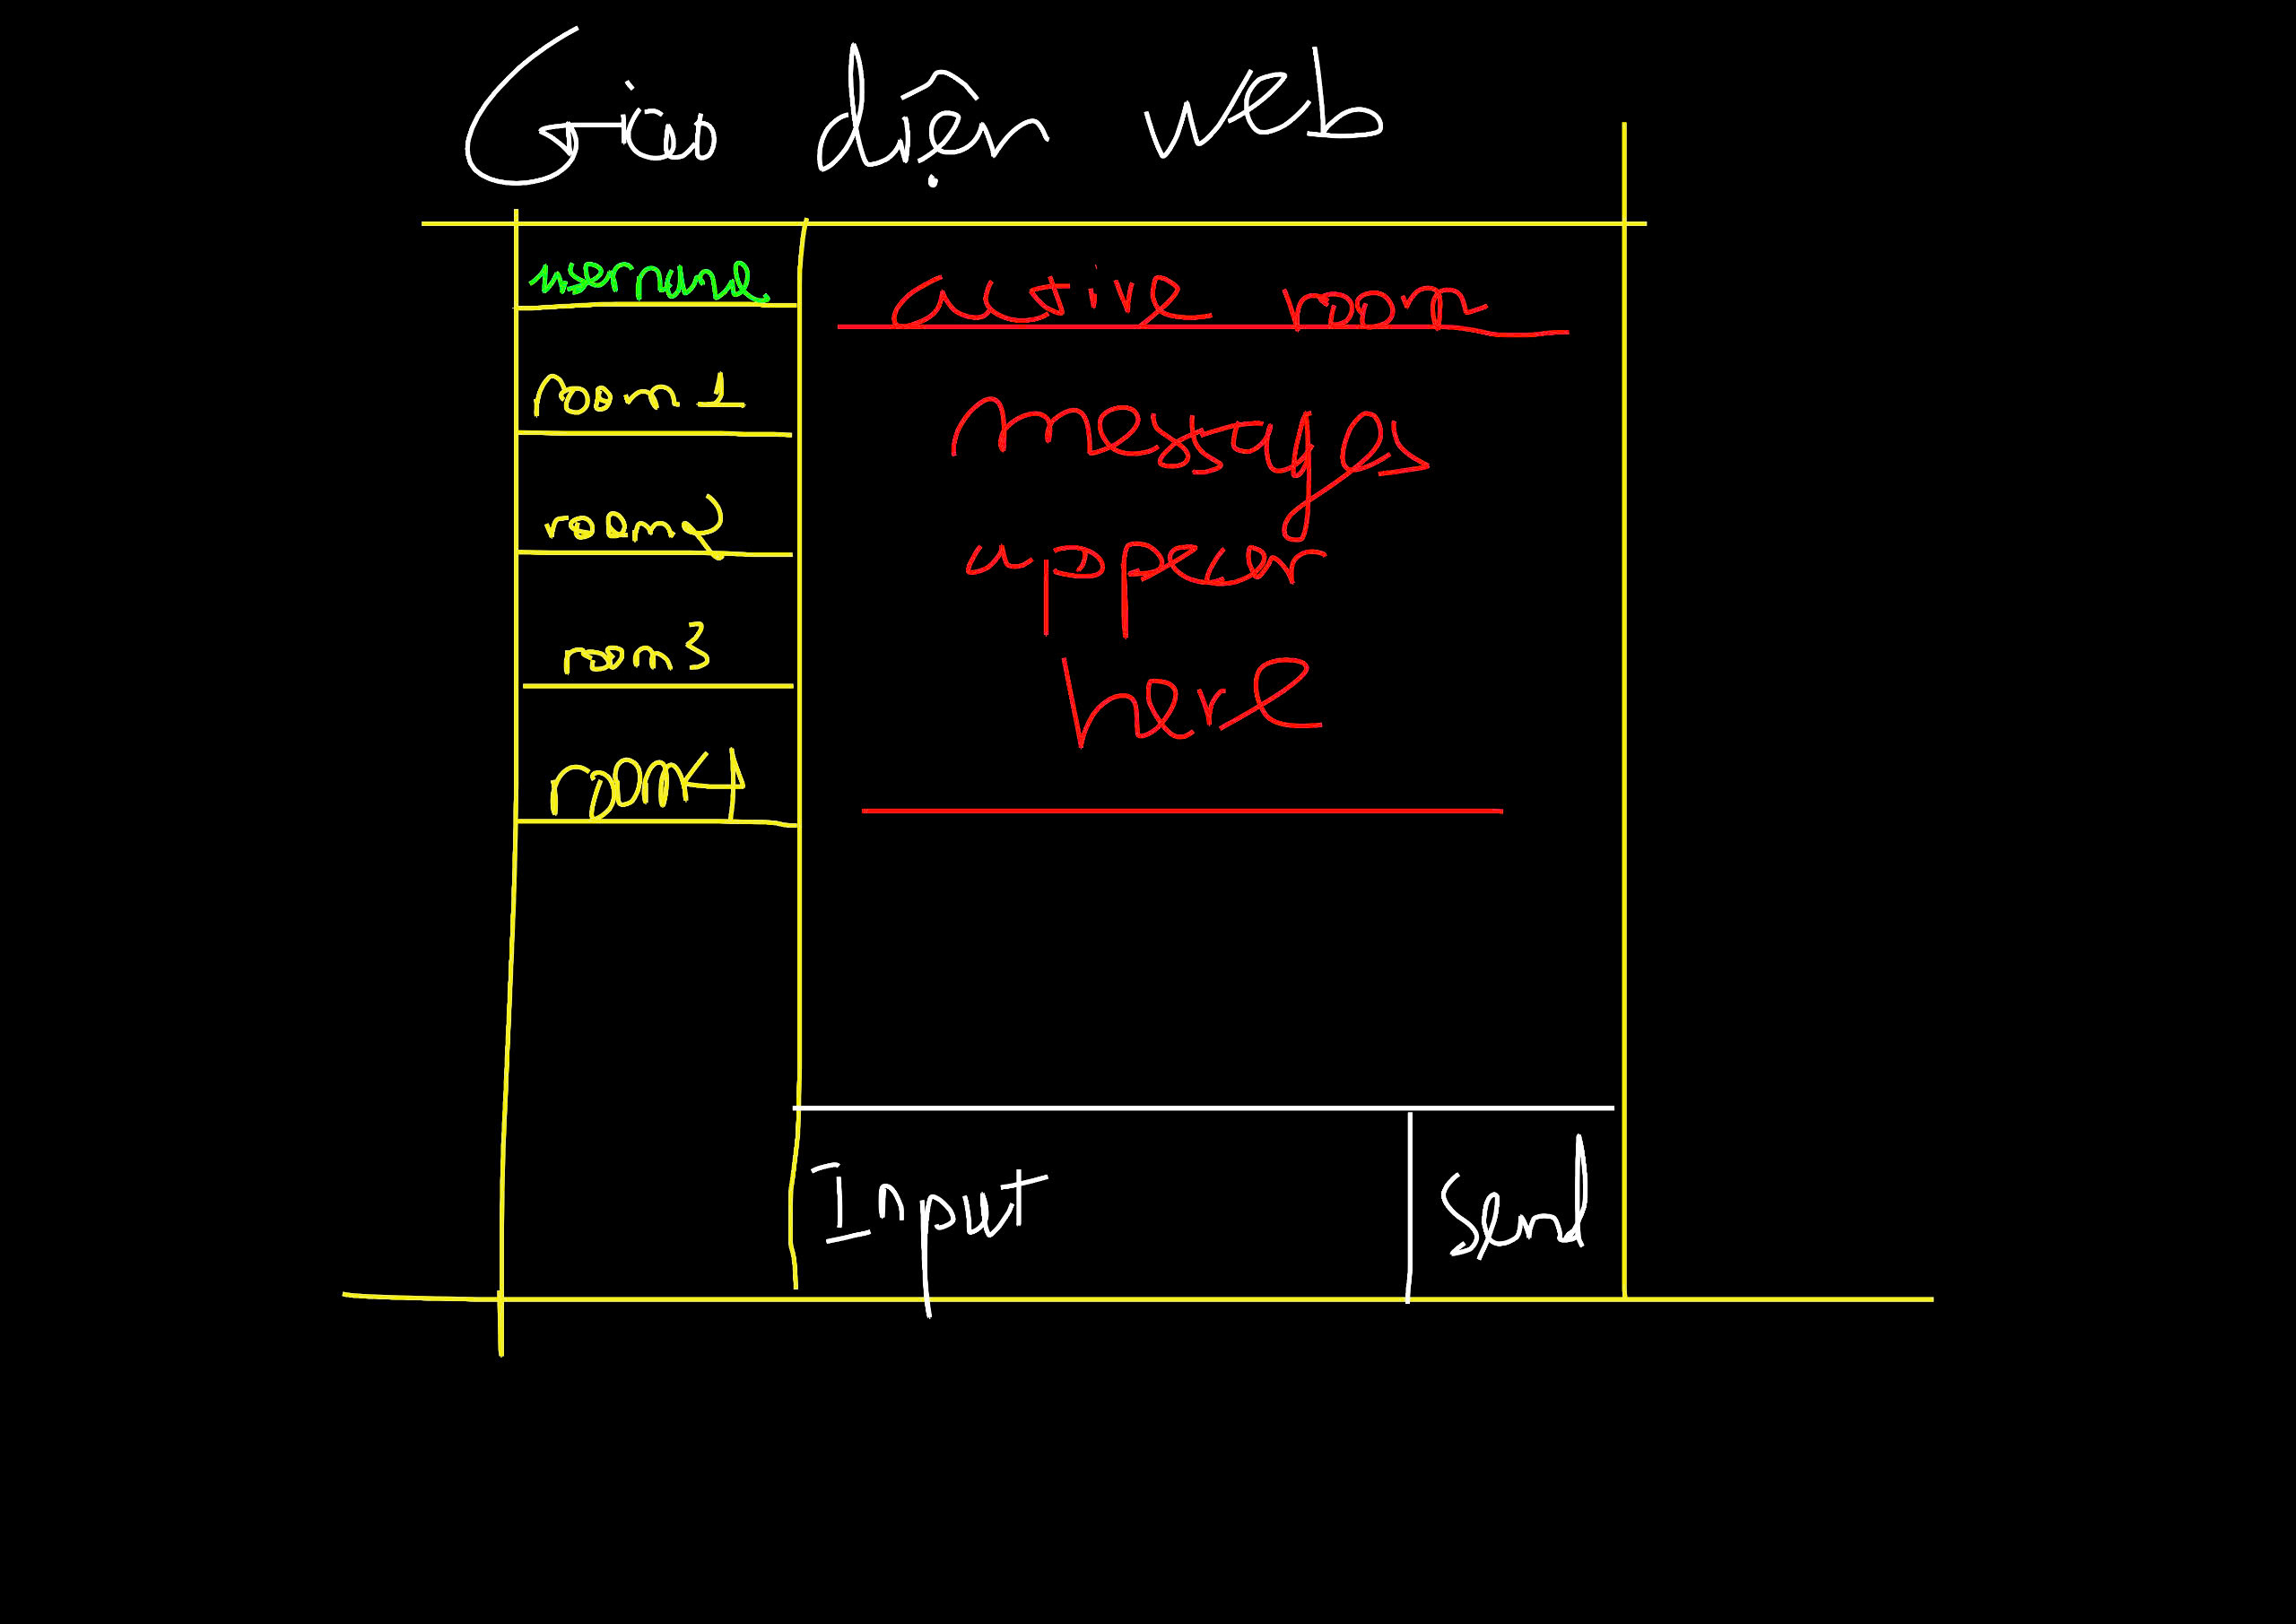 Giao diện web
username
room 1
room2
room3
room4
active room
messages
appear
here
Input
Send